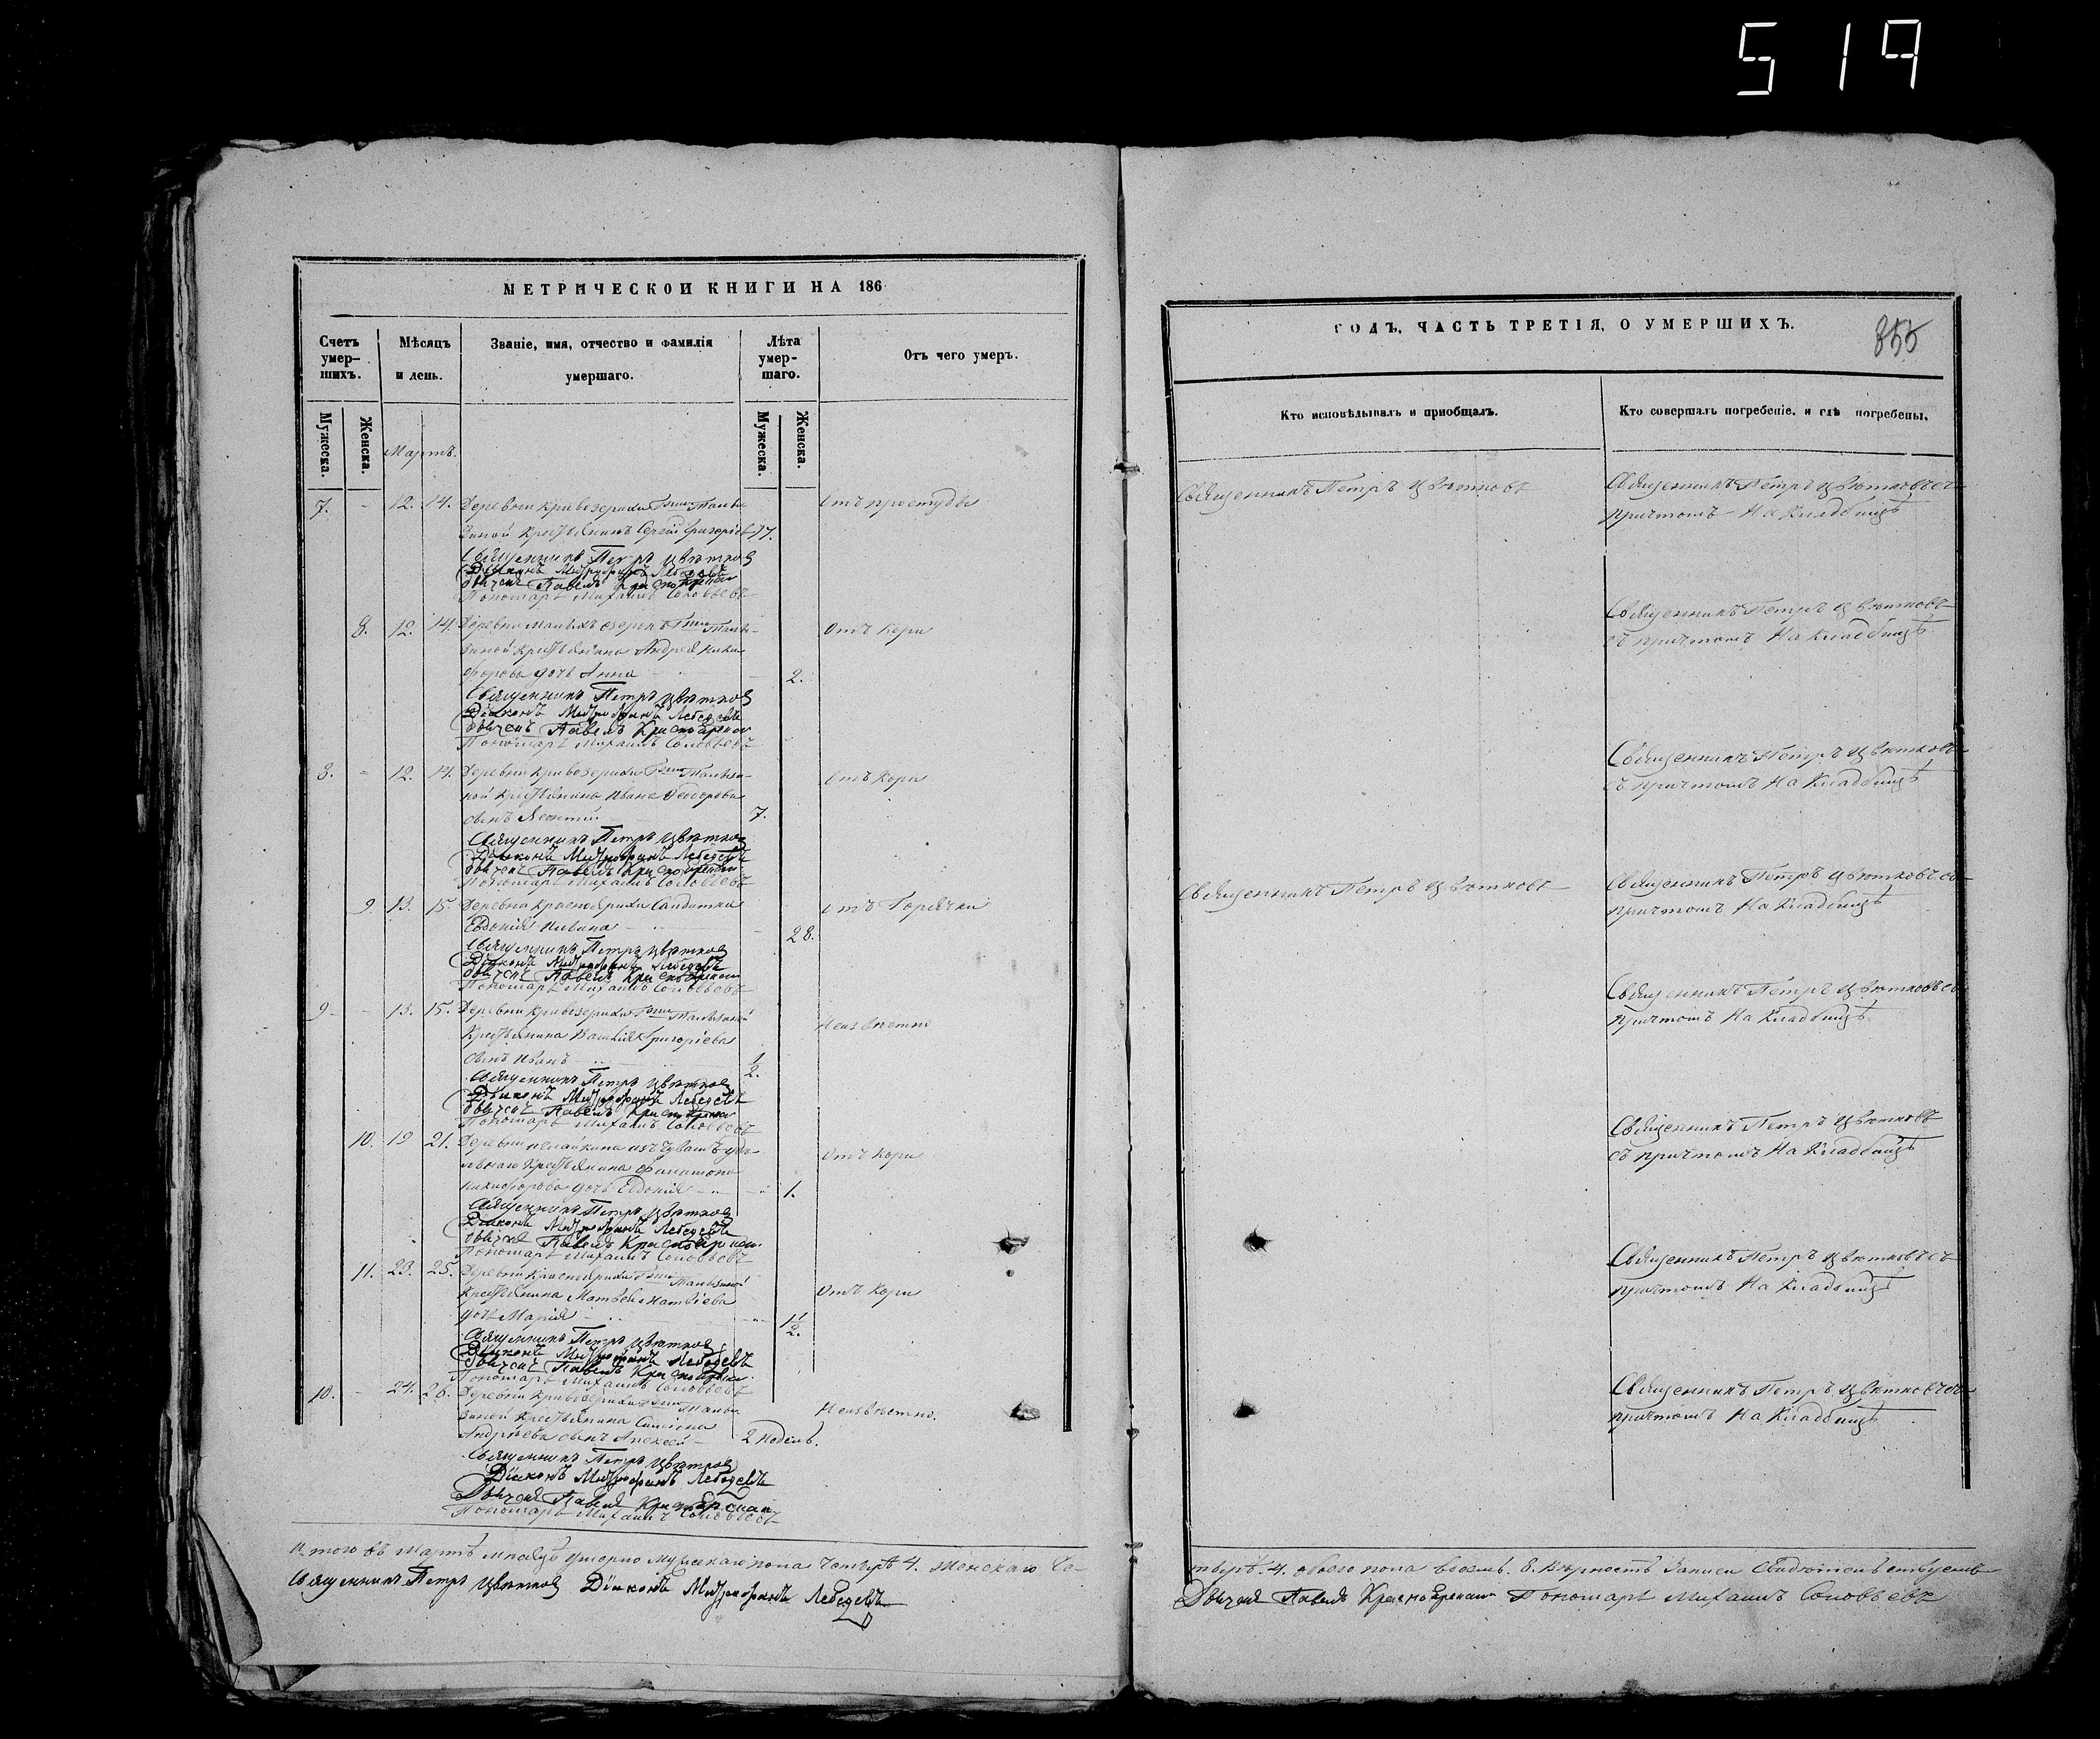 519
МЕТРИЧЕСКОЙ КНИГИ НА 186
Счетъ умер-шихъ.
Мѣсяцъ и день.
Званіе, имя, отчество и фамилія умершаго.
Лѣта умер-шаго.
Отъ чего умеръ.
Мужеска.
Женска.
Мартъ.
Мужеска.
Женска.
7. - 12. 14. Деревни Кривозерихи Гжи Таньзиной Крестьянинъ Сергій Григорьевъ 77. Отъ простуды
Священникъ Петръ Цвѣтков
Діаконъ Митрофанъ Лебедевъ
Павелъ
Пономарь Михаилъ Соловьевъ
8. 12. 14. Деревни Малыхъ озерокъ Гжи
Крестьянина Андрея Ники-
форова дочь Анна 2. Отъ Кори
Священникъ Петръ Цвѣтков
Діаконъ Митрофанъ Лебедевъ
Павелъ
Пономарь Михаилъ Соловьевъ
8. - 12. 14. Деревни Кривозерихи Гжи
Крестьянина Ивана Ѳеодорова
сынъ Леонтій 7. Отъ Кори
Священникъ Петръ Цвѣтков
Діаконъ Митрофанъ Лебедевъ
Павелъ
Пономарь Михаилъ Соловьевъ
9. 13. 15. Деревни Солдатка
Евдокія 28. Отъ Горячки
Священникъ Петръ Цвѣтков
Діаконъ Митрофанъ Лебедевъ
Павелъ
Пономарь Михаилъ Соловьевъ
9. - 13. 15. Деревни Кривозерихи Гжи
Крестьянина Василія Григорьева
сынъ Иванъ 1/2. Неизвѣстно
Священникъ Петръ Цвѣтков
Діаконъ Митрофанъ Лебедевъ
Павелъ
Пономарь Михаилъ Соловьевъ
10. 19 21. Деревни изъ Чувашъ удѣ-
льнаго Крестьянина Филимона
Никифорова дочь Евдокія 1. Отъ Кори
Священникъ Петръ Цвѣтков
Діаконъ Митрофанъ Лебедевъ
Павелъ
Пономарь Михаилъ Соловьевъ
11. 23. 25. Деревни Гжи
Крестьянина Матвѣя Матвѣева
дочь Марія 1 1/2. Отъ Кори
Священникъ Петръ Цвѣтков
Діаконъ Митрофанъ Лебедевъ
Павелъ
Пономарь Михаилъ Соловьевъ
10. - 24. 26. Деревни Кривозерихи Гжи
Крестьянина Симеона
Андреева сынъ Алексей 2 недѣль. Неизвѣстно.
Священникъ Петръ Цвѣтков
Діаконъ Митрофанъ Лебедевъ
Павелъ
Пономарь Михаилъ Соловьевъ
Итого въ Мартѣ мѣсяцѣ умерло мужескаго пола четыре 4. Женскаго че-
Священникъ Петръ Цвѣтков Діаконъ Митрофанъ Лебедевъ
ГОДЪ, ЧАСТЬ ТРЕТІЯ, О УМЕРШИХЪ.
855
Кто исповѣдывалъ и пріобщалъ.
Кто совершалъ погребеніе, и гдѣ погребены.
Священникъ Петръ Цвѣтковъ
Священникъ Петръ Цвѣтковъ съ
причтомъ На Кладбищѣ
Священникъ Петръ Цвѣтковъ
съ причтомъ На Кладбищѣ
Священникъ Петръ Цвѣтковъ
съ причтомъ На Кладбищѣ
Священникъ Петръ Цвѣтковъ
Священникъ Петръ Цвѣтковъ съ
причтомъ На Кладбищѣ
Священникъ Петръ Цвѣтковъ съ
причтомъ На Кладбищѣ
Священникъ Петръ Цвѣтковъ
съ причтомъ На Кладбищѣ
Священникъ Петръ Цвѣтковъ съ
причтомъ На Кладбищѣ
Священникъ Петръ Цвѣтковъ съ
причтомъ На Кладбищѣ
тыре 4. обоего пола восемь 8. вѣрность записи Свидѣтельствуемъ
Павелъ Пономарь Михаилъ Соловьевъ